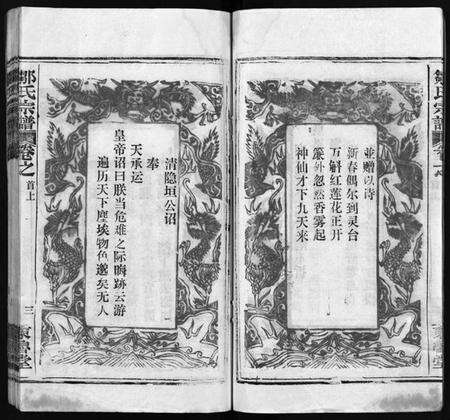 並赠以诗
新春偶尔到灵台
万斛红莲花正开
簾外忽然香雾起
神仙才下九天来
清隐垣公诏
奉
天承运
皇帝诏曰朕当危难之际晦跡云游
遍历天下塵埃物色邈矣无人
鄒氏宗譜
卷之
首上
三